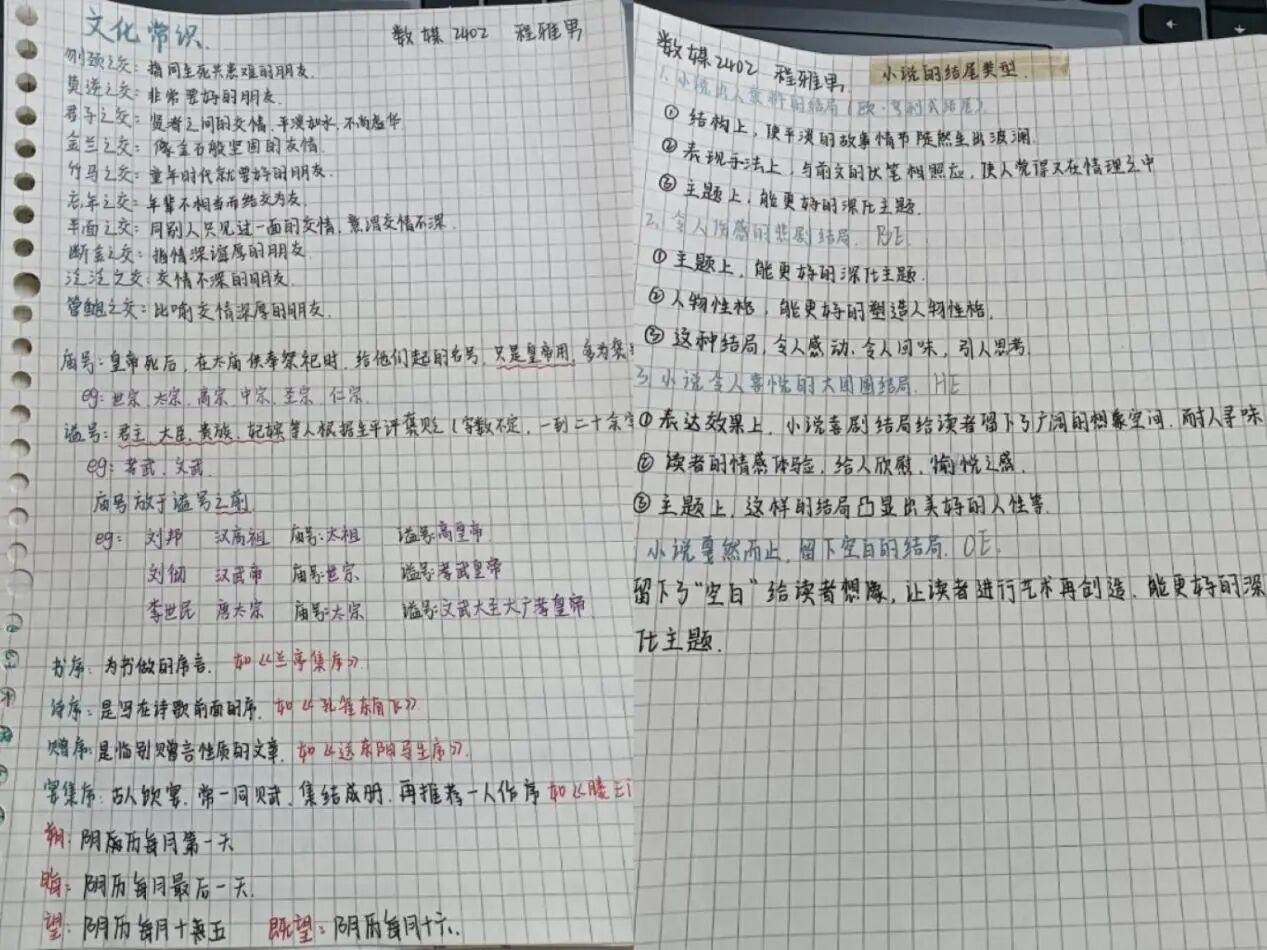 文化常识.
数媒2402 程雅男
刎颈之交：指同生死共患难的朋友.
莫逆之交：非常要好的朋友.
君子之交：贤者之间的交情，平淡如水，不尚虚华
金兰之交：像金石般坚固的友情.
竹马之交：童年时代就要好的朋友.
忘年之交：年辈不相当而结交为友.
半面之交：同别人只见过一面的交情，意谓交情不深.
断金之交：指情深谊厚的朋友.
泛泛之交：交情不深的朋友.
管鲍之交：比喻交情深厚的朋友.
庙号：皇帝死后，在太庙供奉祭祀时，给他们起的名号，只是皇帝用，多为褒
eg：世宗.太宗.高宗.中宗.圣宗.仁宗.
谥号：君主、大臣、贵族、妃嫔等人根据生平评褒贬（字数不定，一到二十余字
eg：孝武，文武.
庙号放于谥号之前
eg：刘邦 汉高祖 庙号：太祖 谥号：高皇帝
刘彻 汉武帝 庙号：世宗 谥号：孝武皇帝
李世民 唐太宗 庙号：太宗 谥号：文武大圣大广孝皇帝
书序：为书做的序言. 如《兰亭集序》.
诗序：是写在诗歌前面的序. 如《孔雀东南飞》
赠序：是临别赠言性质的文章. 如《送东阳马生序》.
宴集序：古人饮宴，常一同赋，集结成册，再推荐一人作序 如《滕王
朔：阴历每月第一天
晦：阴历每月最后一天.
望：阴历每月十五 既望：阴历每月十六.
数媒2402 程雅男
小说的结尾类型.
1.小说出人意料的结局（欧·亨利式结尾）
① 结构上，使平淡的故事情节陡然生出波澜.
② 表现手法上，与前文的伏笔相照应，使人觉得又在情理之中
③ 主题上，能更好的深化主题.
2.令人伤感的悲剧结局. BE.
① 主题上，能更好的深化主题.
② 人物性格，能更好的塑造人物性格.
③ 这种结局，令人感动，令人回味，引人思考.
3.小说令人喜悦的大团圆结局. HE
① 表达效果上，小说喜剧结局给读者留下了广阔的想象空间，耐人寻味
② 读者的情感体验，给人欣慰，愉悦之感.
③ 主题上，这样的结局凸显出美好的人性等.
小说戛然而止，留下空白的结局. OE.
留下了“空白”给读者想像，让读者进行艺术再创造，能更好的深
化主题.